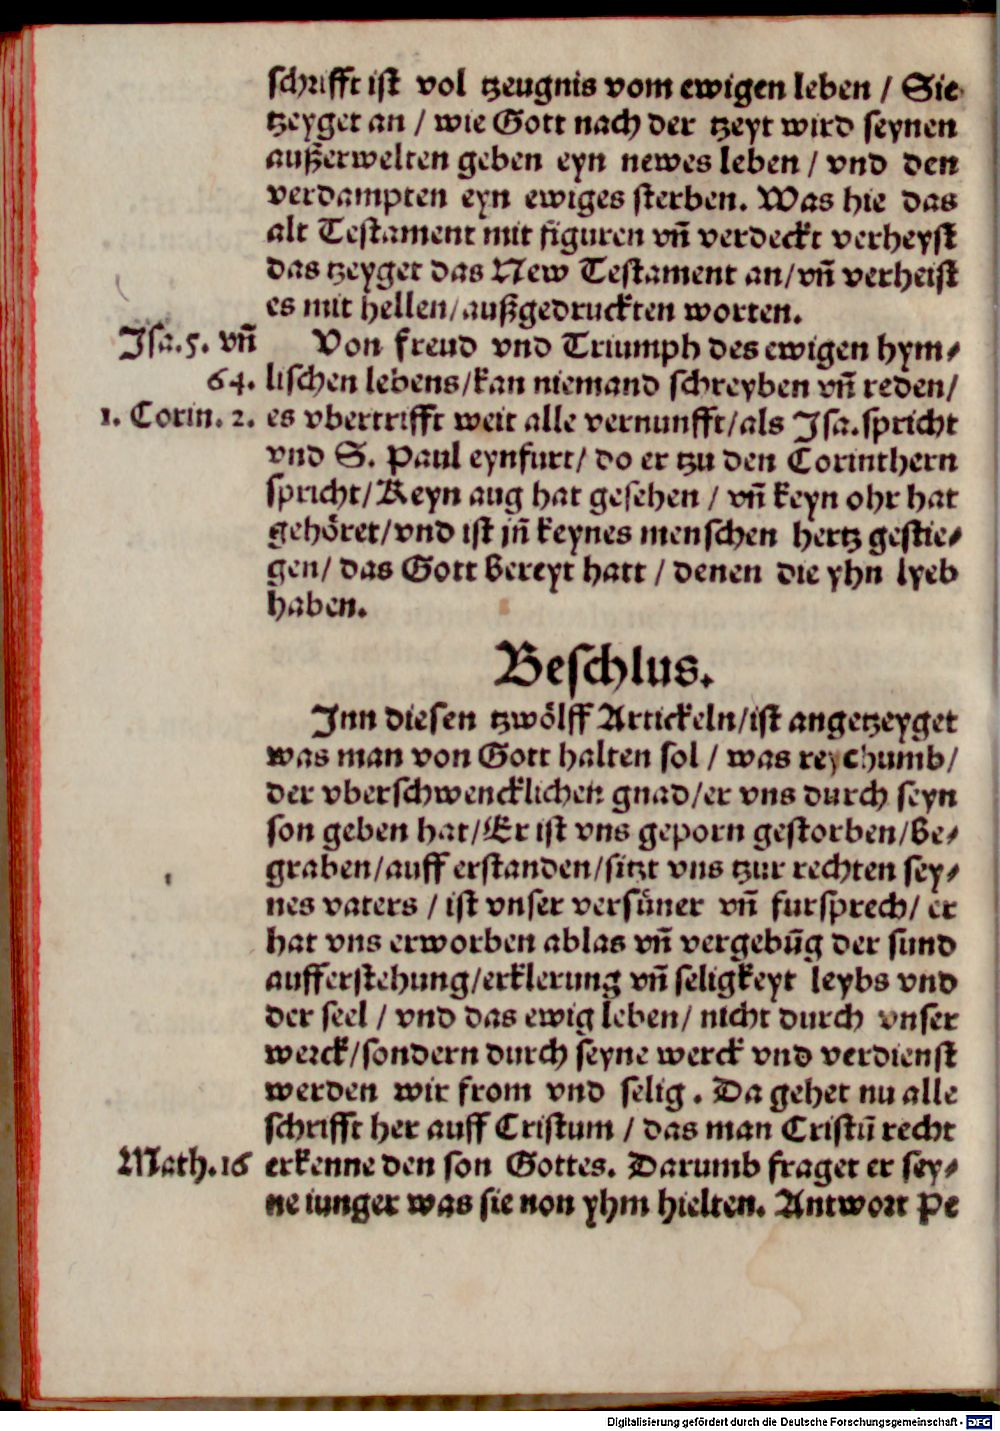 schrifft ist vol tzeugnis vom ewigen leben / Sie
tzeyget an / wie Gott nach der tzeyt wird seynen
außerwelten geben eyn newes leben / vnd den
verdampten eyn ewiges sterben. Was hie das
alt Testament mit figuren vñ verdeckt verheyst
das tzeyget das New Testament an/vñ verheist
es mit hellen/außgedruckten worten.
Jsa.5. vñ Von freud vnd Triumph des ewigen hym-
64. lischen lebens/kan niemand schreyben vñ reden/
1. Corin. 2. es vbertrifft weit alle vernunfft/als Jsa.spricht
vnd S. Paul eynfurt/ do er tzu den Corinthern
spricht/Keyn aug hat gesehen / vñ keyn ohr hat
gehöret/vnd ist jñ keynes menschen hertz gestie-
gen/ das Gott bereyt hatt / denen die yhn lyeb
haben.
Beschlus.
Jnn diesen tzwölff Artickeln/ist angetzeyget
was man von Gott halten sol / was reychumb/
der vberschwencklichen gnad/er vns durch seyn
son geben hat/Er ist vns geporn gestorben/be-
graben/auff erstanden/sitzt vns tzur rechten sey-
nes vaters / ist vnser versüner vñ fursprech/ er
hat vns erworben ablas vñ vergebũg der sund
aufferstehung/erklerung vñ seligkeyt leybs vnd
der seel / vnd das ewig leben/ nicht durch vnser
werck/sondern durch seyne werck vnd verdienst
werden wir from vnd selig . Da gehet nu alle
schrifft her auff Cristum / das man Cristũ recht
Math.16 erkenne den son Gottes. Darumb fraget er sey-
ne iunger was sie non yhm hielten. Antwort Pe
Digitalisierung gefördert durch die Deutsche Forschungsgemeinschaft - DFG